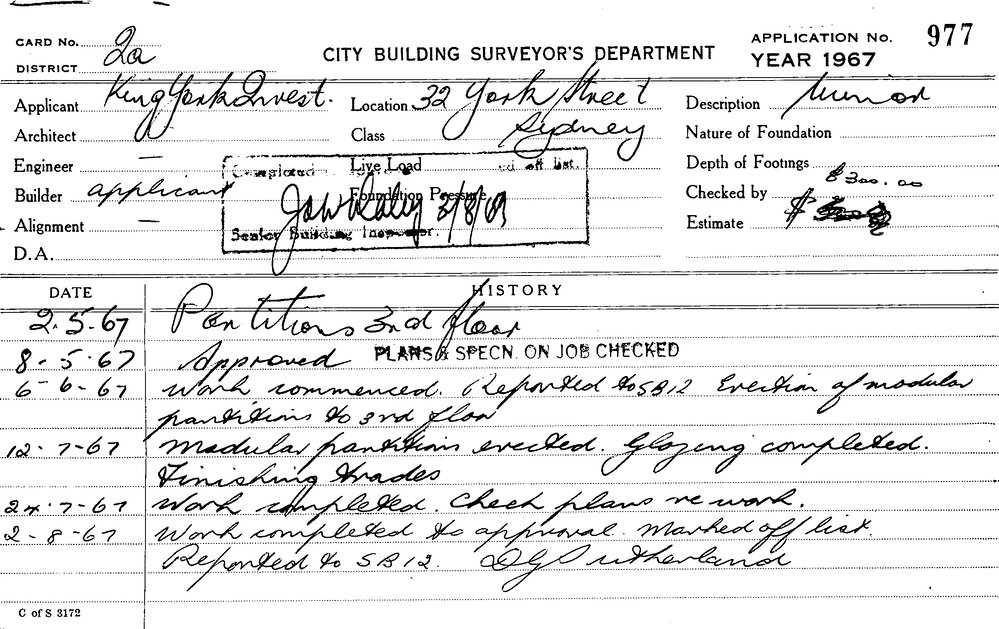 CARD No. 2a
DISTRICT
CITY BUILDING SURVEYOR'S DEPARTMENT
APPLICATION No. 977
YEAR 1967
Applicant King York Invest. Location 32 York Street Description Minor
Architect Class Sydney Nature of Foundation
Engineer — Live Load Depth of Footings
Completed off list.
$300.00
Builder applicant Foundation Pressure Checked by
2/8/67
Alignment — Estimate $
Senior Building Inspector.
D.A.
DATE HISTORY
2.5.67 Partitions 3rd floor
8.5.67 Approved PLANS & SPECN. ON JOB CHECKED
6-6-67 Work commenced. Reported to SB12 Erection of modular
partitions to 3rd floor
12-7-67 Modular partitions erected. Glazing completed.
Finishing trades
24.7.67 Work completed. Check plans re work.
2-8-67 Work completed to approval. Marked off list.
Reported to SB12. DG Sutherland
C of S 3172